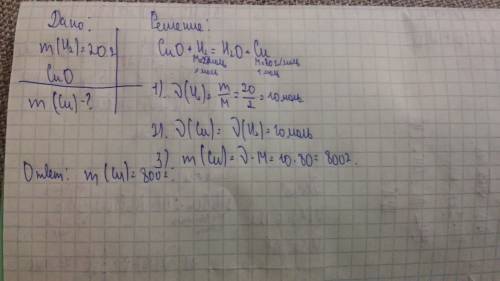 Дано:
m(H₂)=20г
CuO
m(Cu)-?
Решение:
CuO + H₂ = H₂O + Cu
M=2г/моль M=80г/моль
1 моль 1 моль
1). ν(H₂)= m/M = 20/2 = 10 моль
2). ν(Cu)= ν(H₂)=10 моль
3) m(Cu)= ν·M=10·80=800г.
Ответ: m(Cu)=800г.